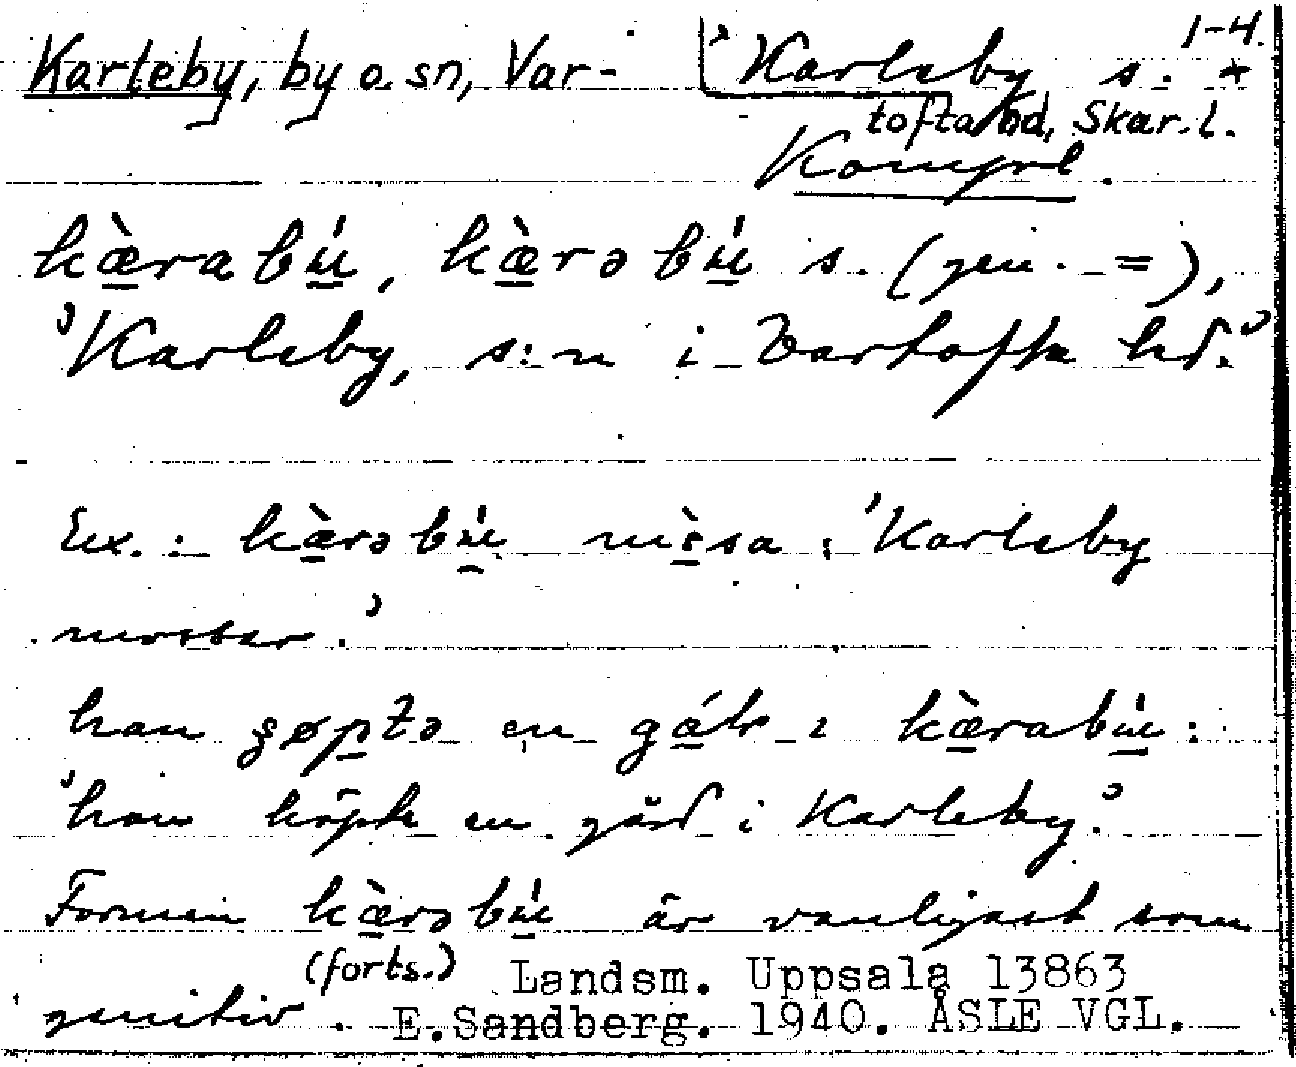 1-4.
Karleby, by o. sn, Var- 'Karleby s. *
tofta hd, Skar. l.
Kompl.
kæ̀rabú, kæ̀rəbú s. (gen. =),
'Karleby, s:n i Vartofta hd.'
Ex.: kæ̀rəbú mòsa: 'Karleby
mossar.'
han ʂøptə en gáɽ ı kæ̀rabú:
'han köpte en gård i Karleby.'
Formen kæ̀rəbú är vanligast som
(forts.) Landsm. Uppsala 13863
genitiv. E.Sandberg. 1940. ÅSLE VGL.